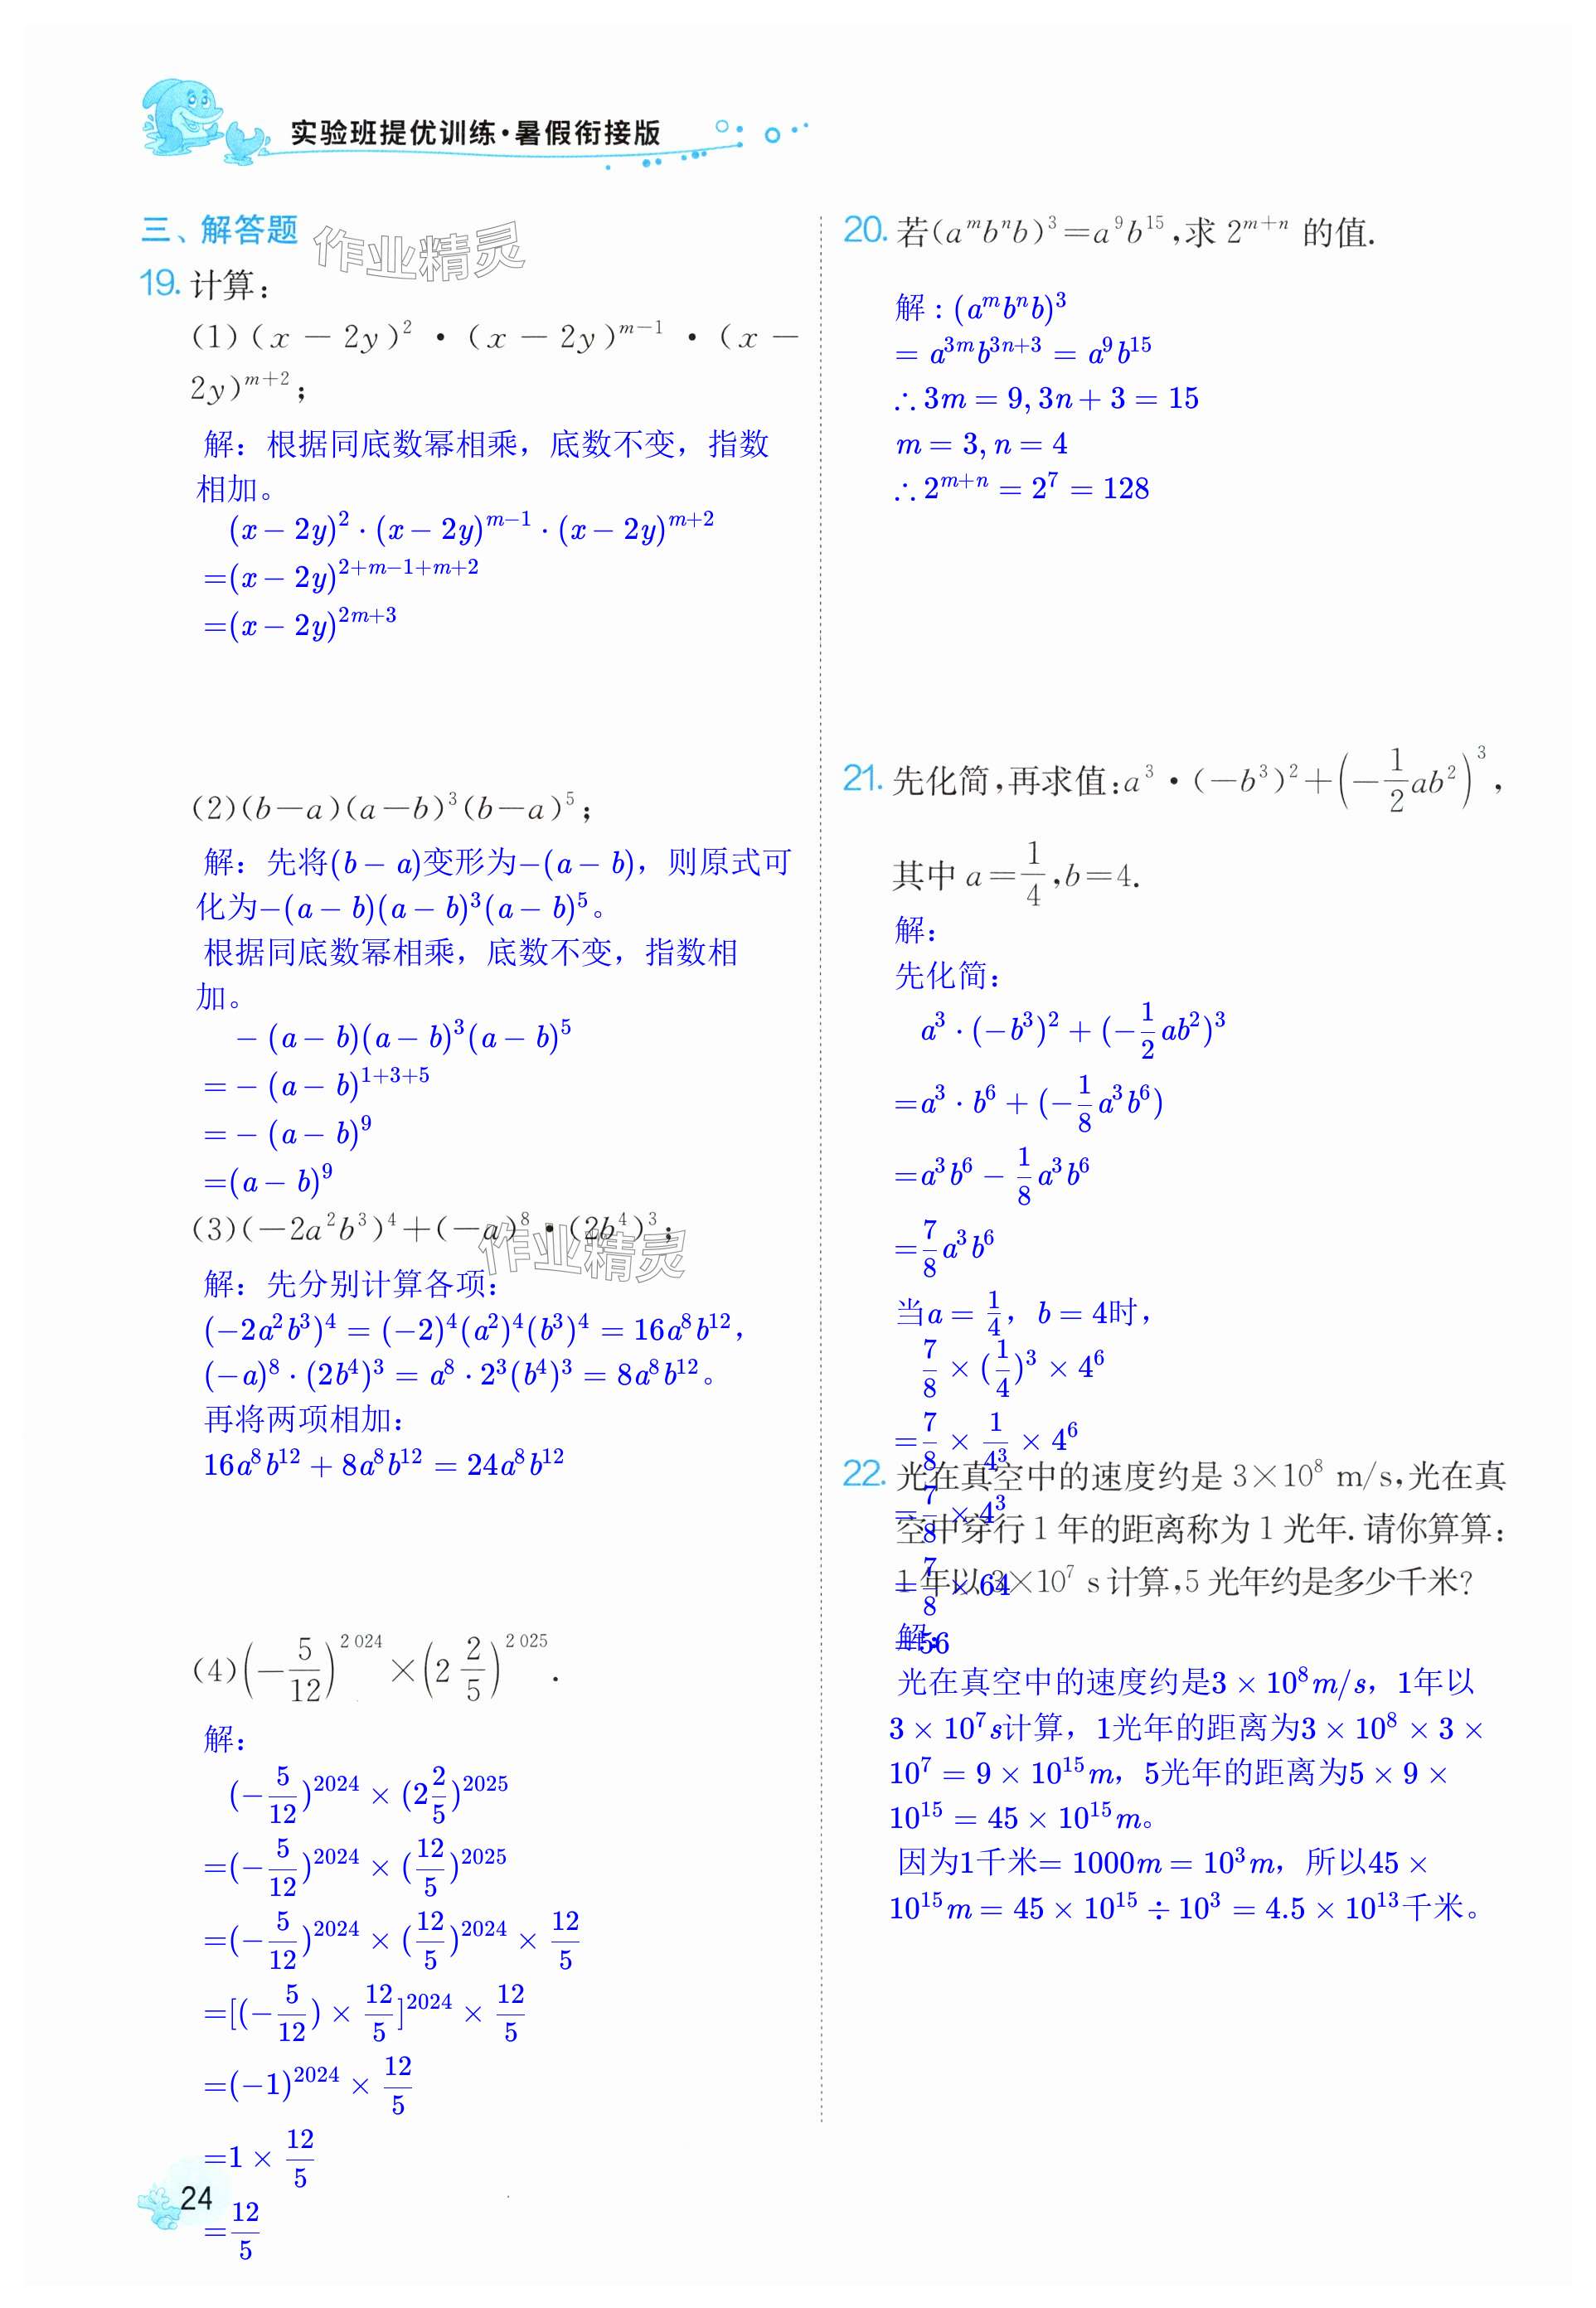 实验班提优训练·暑假衔接版
三、解答题
作业精灵
19. 计算:
(1)(x－2y)²·(x－2y)^{m-1}·(x－
2y)^{m+2};
解：根据同底数幂相乘，底数不变，指数
相加。
(x－2y)²·(x－2y)^{m-1}·(x－2y)^{m+2}
=(x－2y)^{2+m-1+m+2}
=(x－2y)^{2m+3}
(2)(b－a)(a－b)³(b－a)⁵;
解：先将(b－a)变形为－(a－b)，则原式可
化为－(a－b)(a－b)³(a－b)⁵。
根据同底数幂相乘，底数不变，指数相
加。
－(a－b)(a－b)³(a－b)⁵
=－(a－b)^{1+3+5}
=－(a－b)⁹
=(a－b)⁹
(3)(－2a²b³)⁴＋(－a)⁸·(2b⁴)³;
作业精灵
解：先分别计算各项：
(－2a²b³)⁴=(－2)⁴(a²)⁴(b³)⁴=16a⁸b¹²，
(－a)⁸·(2b⁴)³=a⁸·2³(b⁴)³=8a⁸b¹²。
再将两项相加：
16a⁸b¹²+8a⁸b¹²=24a⁸b¹²
(4)(－5/12)^{2 024}×(2 2/5)^{2 025}.
解：
(－5/12)^{2024}×(2 2/5)^{2025}
=(－5/12)^{2024}×(12/5)^{2025}
=(－5/12)^{2024}×(12/5)^{2024}×12/5
=[(－5/12)×12/5]^{2024}×12/5
=(－1)^{2024}×12/5
=1×12/5
=12/5
24
20. 若(a^m b^n b)³=a⁹b¹⁵,求 2^{m+n} 的值.
解：(a^m b^n b)³
=a^{3m}b^{3n+3}=a⁹b¹⁵
∴3m=9,3n+3=15
m=3,n=4
∴2^{m+n}=2⁷=128
21. 先化简,再求值:a³·(－b³)²＋(－1/2ab²)³,
其中 a=1/4,b=4.
解：
先化简：
a³·(－b³)²+(－1/2ab²)³
=a³·b⁶+(－1/8a³b⁶)
=a³b⁶－1/8a³b⁶
=7/8a³b⁶
当a=1/4，b=4时，
7/8×(1/4)³×4⁶
=7/8×1/4³×4⁶
=7/8×4³
=7/8×64
=56
22. 光在真空中的速度约是 3×10⁸ m/s,光在真
空中穿行 1 年的距离称为 1 光年.请你算算:
1 年以 3×10⁷ s 计算,5 光年约是多少千米?
解：
光在真空中的速度约是3×10⁸m/s，1年以
3×10⁷s计算，1光年的距离为3×10⁸×3×
10⁷=9×10¹⁵m，5光年的距离为5×9×
10¹⁵=45×10¹⁵m。
因为1千米=1000m=10³m，所以45×
10¹⁵m=45×10¹⁵÷10³=4.5×10¹³千米。